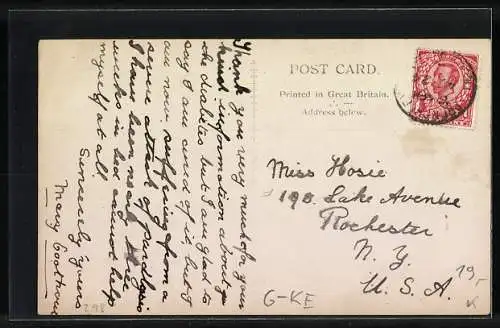 Thank you very much for your
kind information about
the diabetes but I am glad to
say I am cured of it, but I
am now suffering from a
severe attack of paralysis
I have been nearly three
weeks in bed cannot help
myself at all.
Sincerely yours
Mary
POST CARD.
Printed in Great Britain.
Address below.
Miss Hosie
198. Lake Avenue
Rochester
N. Y.
U. S. A.
19,-
K
G-KE
298